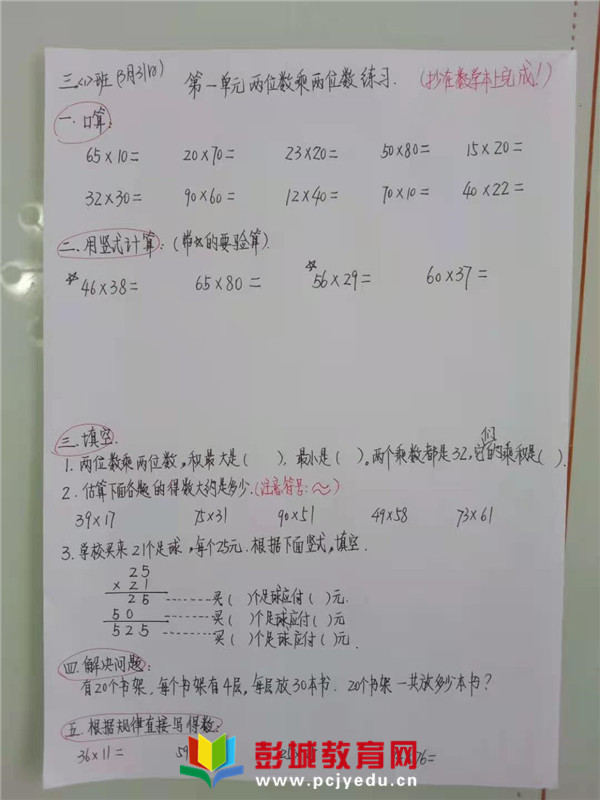 三<1>班 (3月31日) 第一单元 两位数乘两位数 练习. (抄在数学本上完成!)
一. 口算:
65×10= 20×70= 23×20= 50×80= 15×20=
32×30= 90×60= 12×40= 70×10= 40×22=
二. 用竖式计算: (带☆的要验算).
☆46×38= 65×80= ☆56×29= 60×37=
三. 填空.
1. 两位数乘两位数,积最大是( ), 最小是( )。两个乘数都是32,它们的乘积是( ).
2. 估算下面各题的得数大约是多少.(注意符号:≈)
39×17 75×31 90×51 49×58 73×61
3. 学校买来21个足球,每个25元.根据下面竖式,填空.
25
×21
25 ------买( )个足球应付( )元.
50 ------买( )个足球应付( )元
525 ------买( )个足球应付( )元.
四. 解决问题:
有20个书架,每个书架有4层,每层放30本书. 20个书架一共放多少本书?
五. 根据规律直接写得数:
36×11= 59 76=
彭城教育网
www.pcjyedu.cn